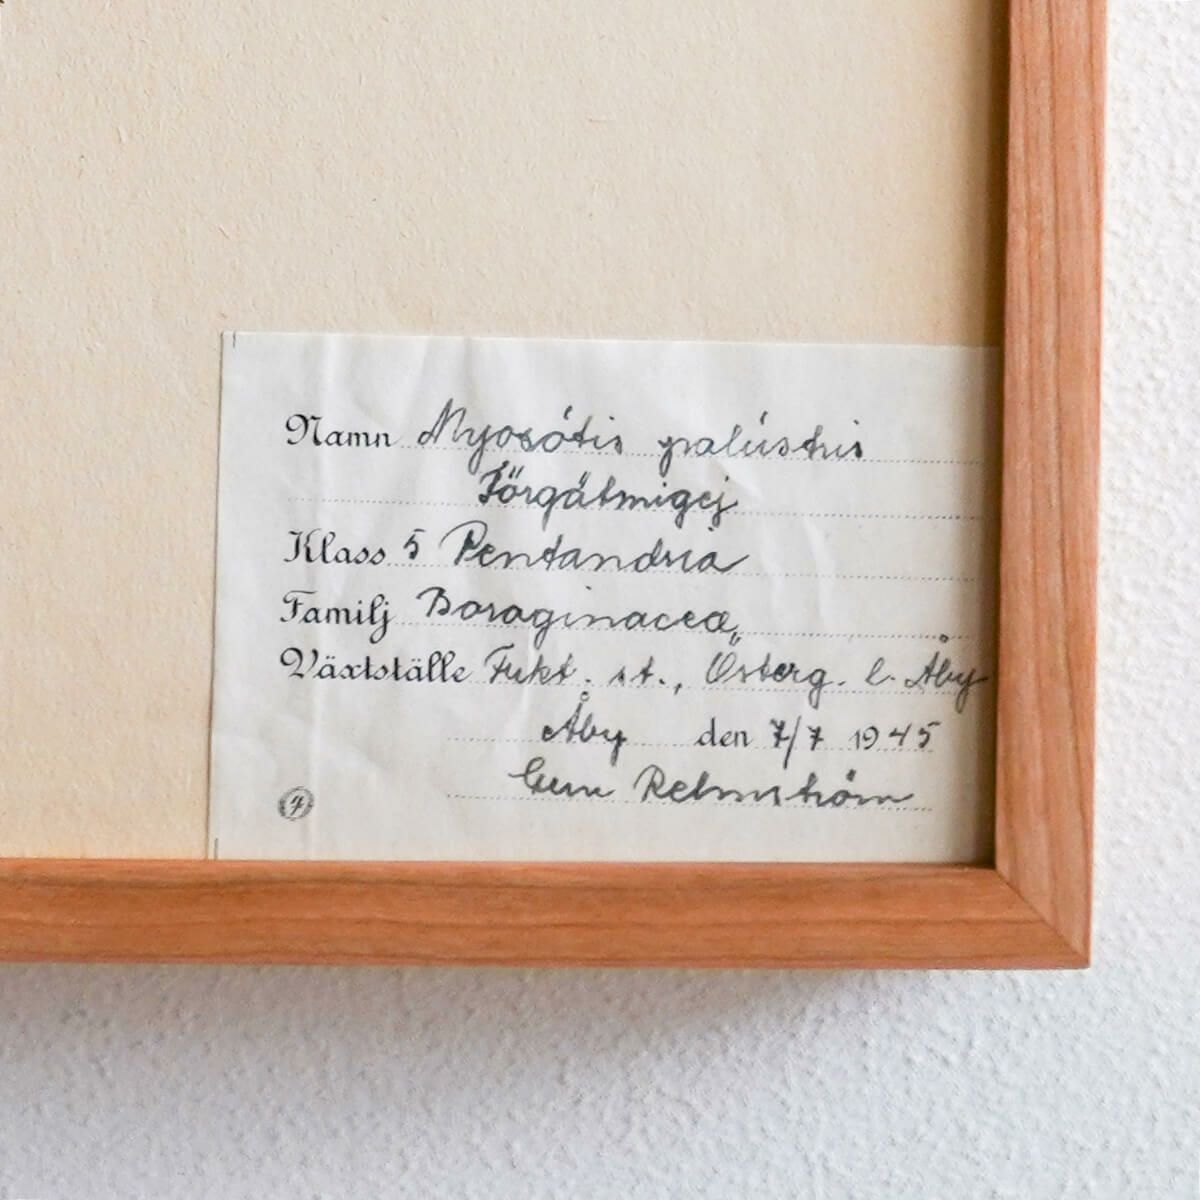 Namn Myosótis palústris
Förgätmigej
Klass 5 Pentandria
Familj Boraginaceæ
Växtställe Fukt. st., Österg. l. Åby
Åby den 7/7 1945
Gun
4